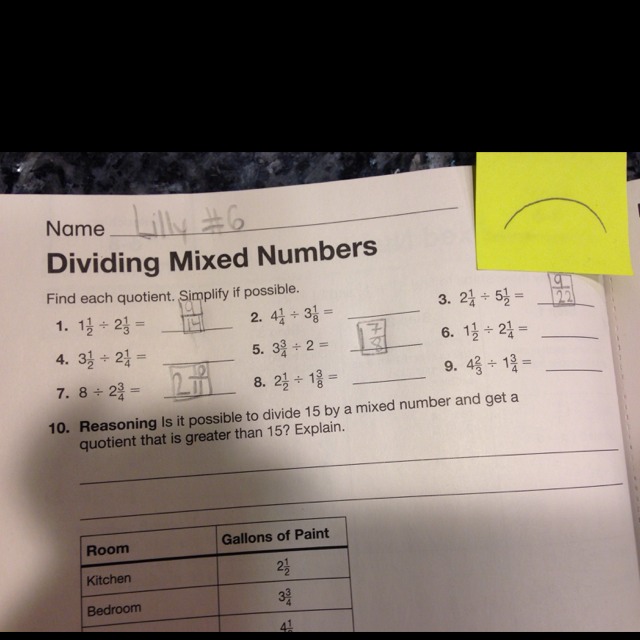 Name Lilly #6
Dividing Mixed Numbers
Find each quotient. Simplify if possible.
1. 1 1/2 ÷ 2 1/3 = 9/14
2. 4 1/4 ÷ 3 1/8 =
3. 2 1/4 ÷ 5 1/2 = 9/22
4. 3 1/2 ÷ 2 1/4 =
5. 3 3/4 ÷ 2 =
6. 1 1/2 ÷ 2 1/4 =
7. 8 ÷ 2 3/4 = 2 10/11
8. 2 1/2 ÷ 1 3/8 =
9. 4 2/3 ÷ 1 3/4 =
10. Reasoning Is it possible to divide 15 by a mixed number and get a
quotient that is greater than 15? Explain.
Room Gallons of Paint
Kitchen 2 1/2
Bedroom 3 3/4